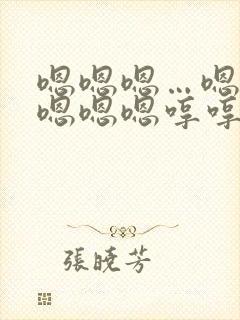 嗯嗯嗯…嗯
嗯嗯嗯哼哼
張曉芳